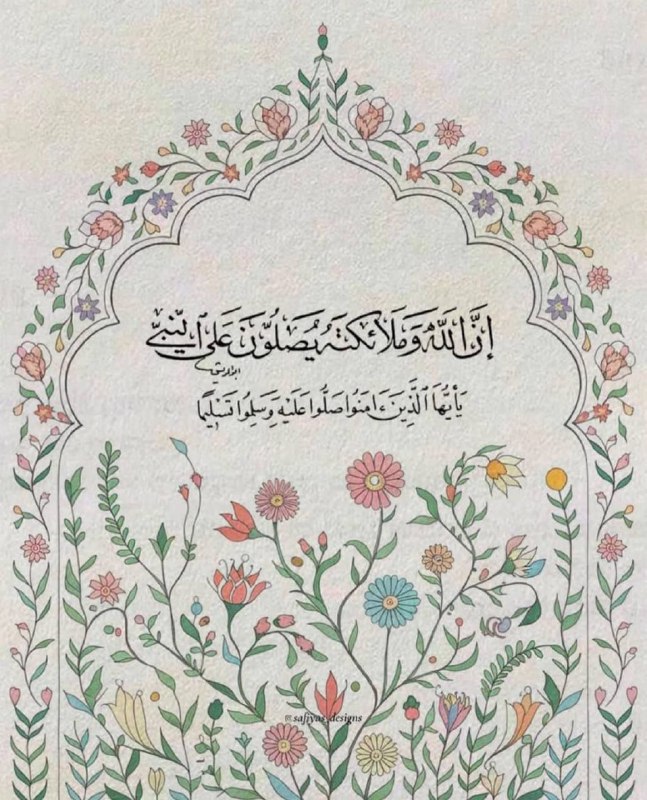 إِنَّ ٱللَّهَ وَمَلَٰٓئِكَتَهُۥ يُصَلُّونَ عَلَى ٱلنَّبِيِّ
يَٰٓأَيُّهَا ٱلَّذِينَ ءَامَنُوا۟ صَلُّوا۟ عَلَيْهِ وَسَلِّمُوا۟ تَسْلِيمًا
@safiyas_designs